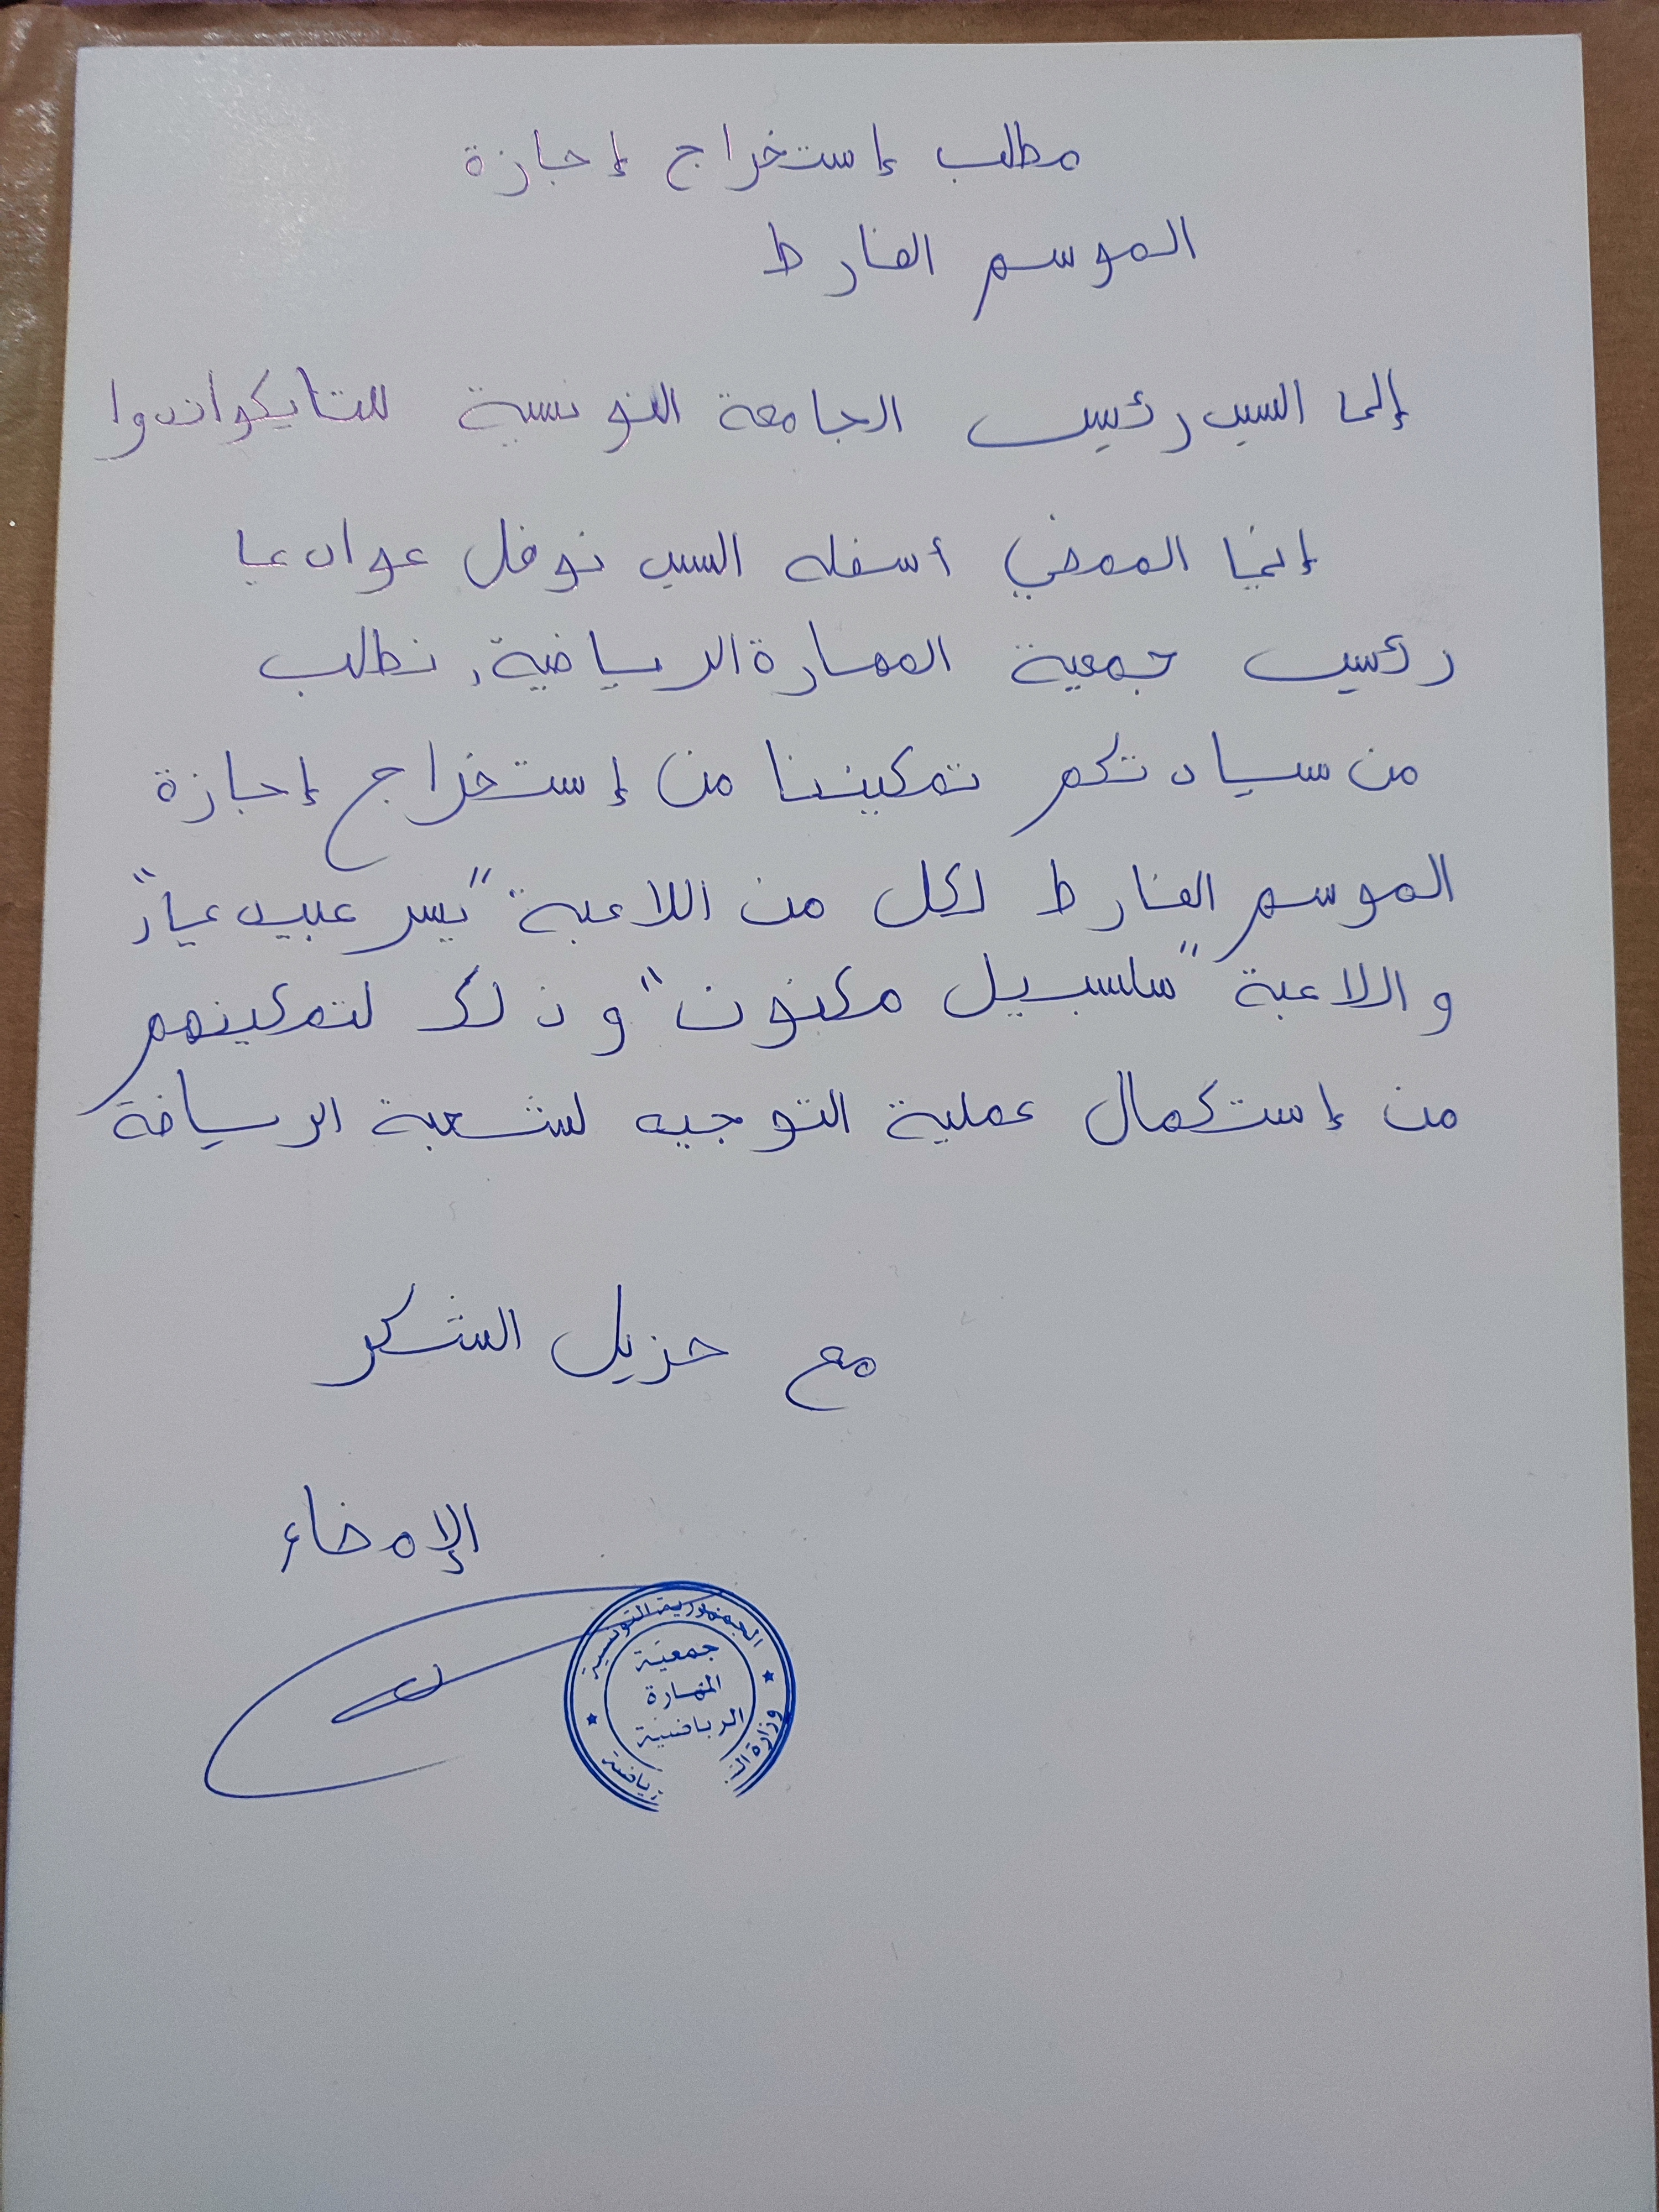 مطلب إستخراج إجازة
الموسم الفارط
إلى السيد رئيس الجامعة التونسية للتايكواندوا
إني الممضي أسفله السيد نوفل
رئيس جمعية المهارة الرياضية، نطلب
من سيادتكم تمكيننا من إستخراج إجازة
الموسم الفارط لكل من اللاعبة "يسر عبيد عياد"
و اللاعبة "سلسبيل مكنون" و ذلك لتمكينهم
من إستكمال عملية التوجيه لشعبة الرياضة
مع جزيل الشكر
الإمضاء
الجمهورية التونسية
جمعية
المهارة
الرياضية
وزارة
رياضة